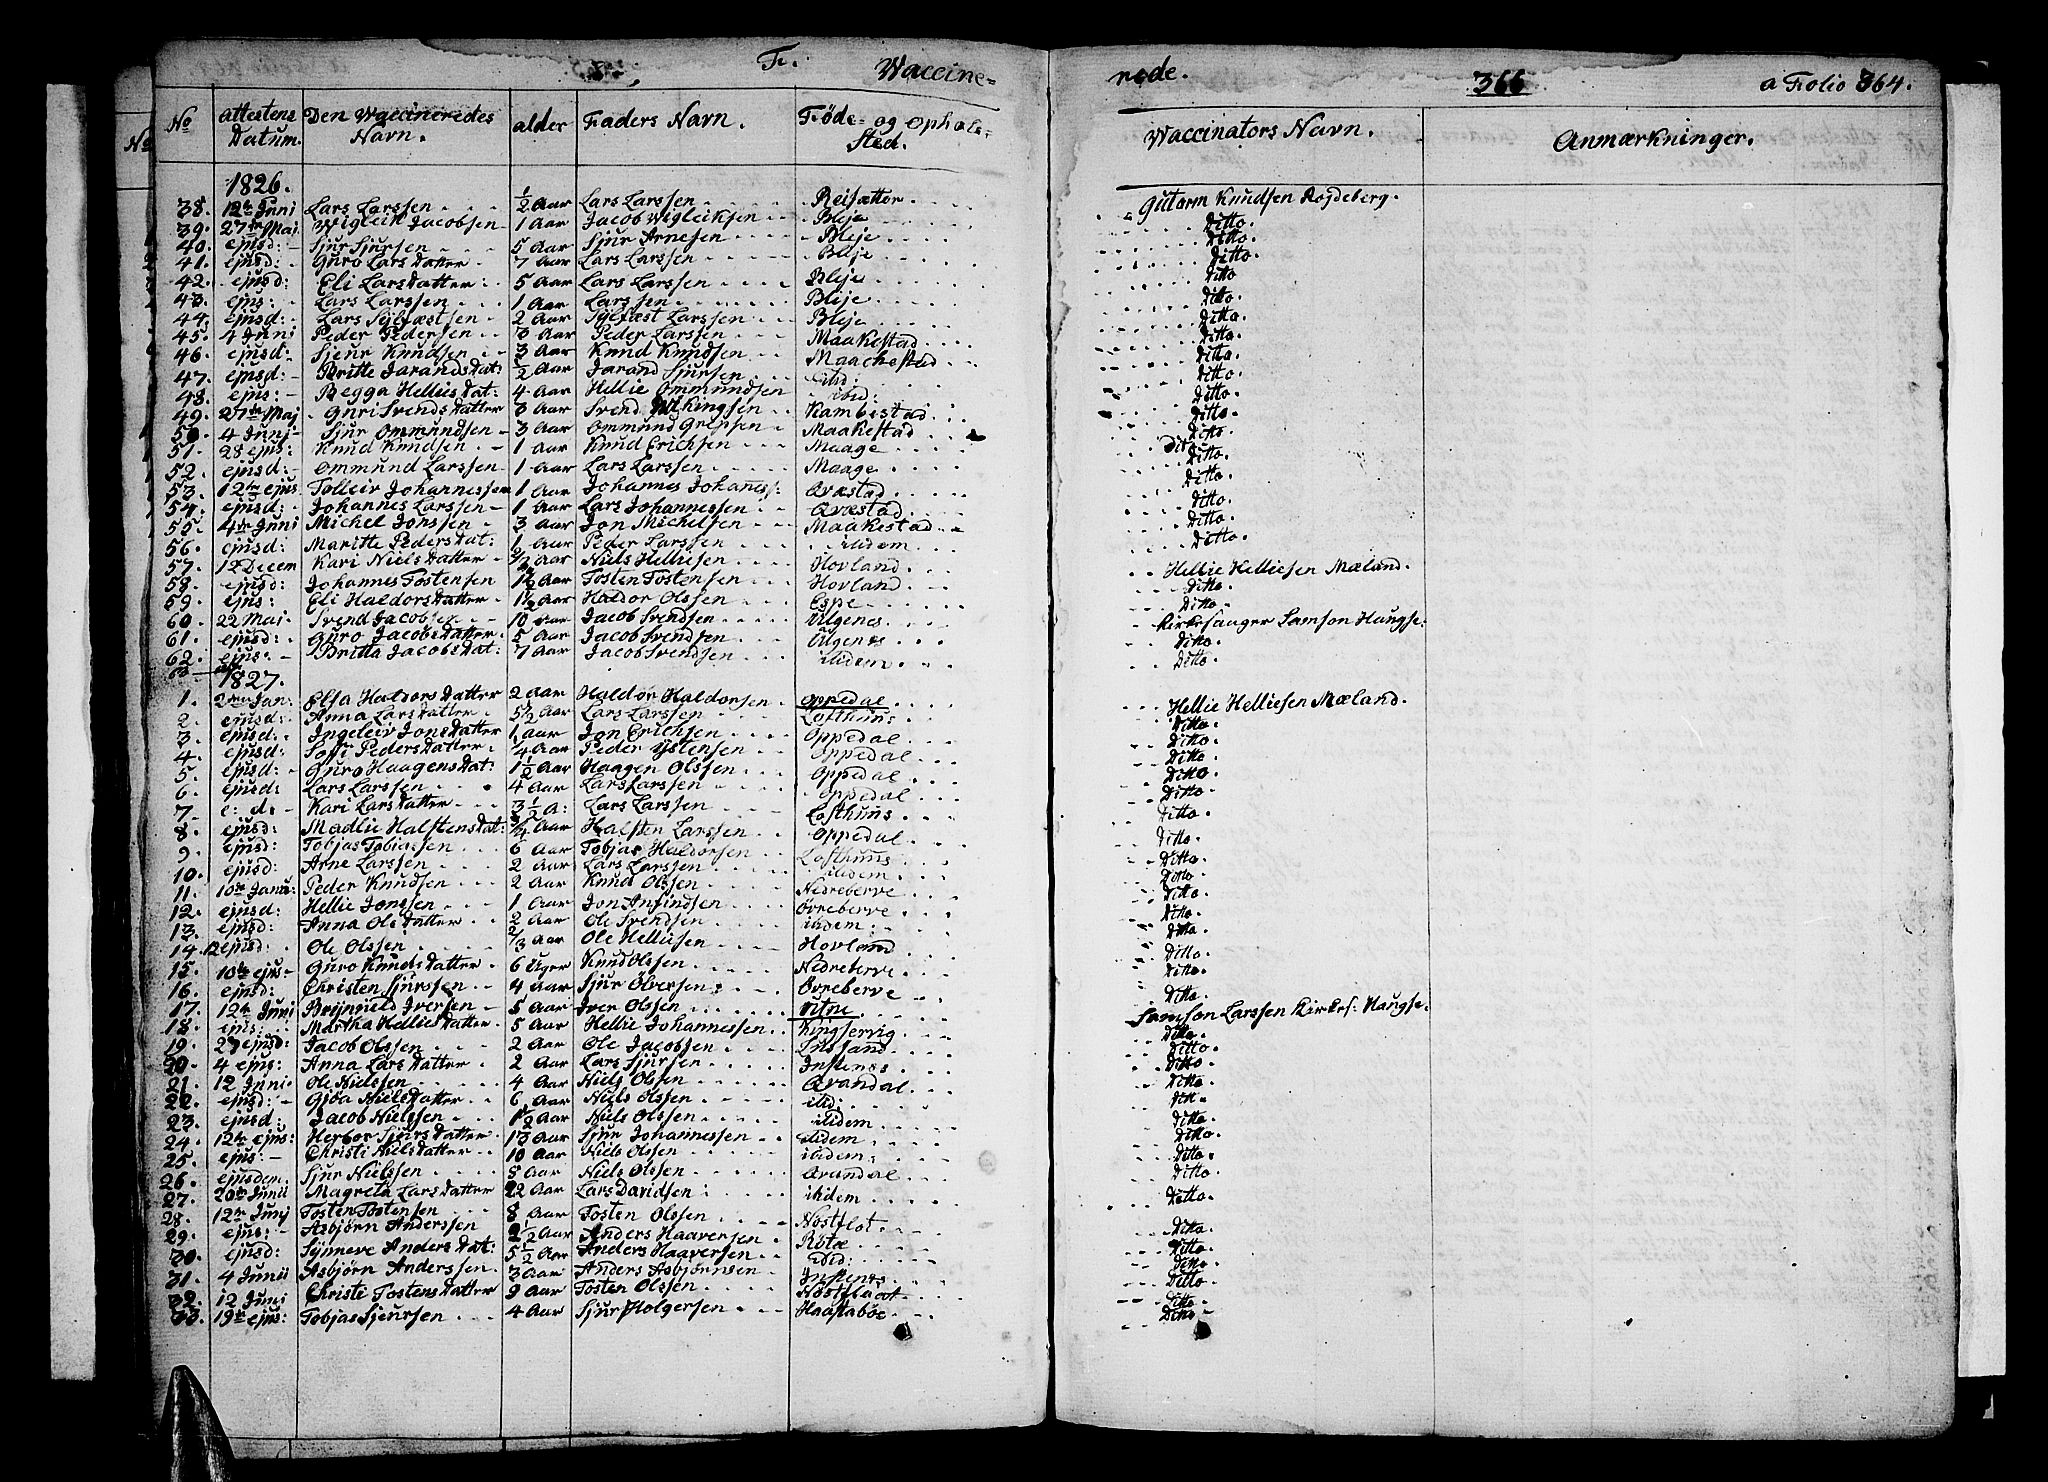 F. Waccine= rede. 366 a Folio 364.
No
No attestens Datum. Den Waccineredes Navn. alder Faders Navn. Føde- og Ophols- Sted. Waccinators Navn. Anmærkninger.
1826.
38. 12te Juni Lars Larssen 1/2 Aar Lars Larssen Reisætter Gutorm Knudsen Rosdeberg.
39. 27de Maj Wigleik Jacobsen 1 Aar Jacob Wigleiksen Bleje Ditto.
40. ejusd: Sjur Sjursen 5 Aar Sjur Arnesen Bleje Ditto.
41. ejusd: Guro Larsdatter 7 Aar Lars Larssen Bleje Ditto.
42. ejusd: Eli Larsdatter 5 Aar Lars Larssen Bleje Ditto
43. ejus: Lars Larssen 1 Aar Larssen Bleje Ditto.
44. ejusd: Lars Sylfæstsen 2 Aar Sylfæst Larssen Bleje Ditto.
45. 4 Juni Peder Pedersen 3 Aar Peder Larssen Maakestad Ditto.
46. ejusd: Sjeur Knudsen 3 Aar Knud Knudsen Maachestad Ditto.
47. ejusd: Britte Jarandsdat: 1/2 Aar Jarand Sjursen ibid: Ditto.
48. ejus: Begga Helliesdat: 4 Aar Hellie Ommundsen ibid: Ditto.
49. 27de Maj Guri Svendsdatter 3 Aar Svend Wikingsen Kambestad Ditto.
50. 4 Junj Sjur Ommundsen 3 Aar Ommund Grepsen Maakestad Ditto.
51. 28 ejus: Knud Knudsen 1 Aar Knud Erichsen Maage Ditto.
52. ejusd: Ommund Larssen 1 Aar Lars Larssen Maage Ditto.
53. 12te ejus Tolleiv Johannessen 1 Aar Johannes Johaness: Aræstad Ditto.
54. ejusd: Johannes Larssen 1 Aar Lars Johannessen Aræstad Ditto.
55. 4de Juni Michel Jonssen 3 Aar Jon Michelsen Maakestad Ditto.
56. ejusd: Maritte Pedersdat: 1 Aar Peder Larssen ibidem
57. 12 Decem Kari Nielsdatter Aar Niels Helliesen Hovland Hellie Helliesen Mæland.
58. ejusd: Johannes Tostensen 1 1/2 Aar Tosten Tostensen Hovland Ditto.
59. ejus: Eli Haldorsdatter 1 1/2 Aar Haldor Olssen Espe Ditto.
60. 22 Maj. Svend Jacobsen 10 Aar Jacob Svendsen Algenes Kirkesanger Samson Haugse:
61. ejusd: Guro Jacobsdatter 5 Aar Jacob Svendsen Algenes Ditto.
62. ejus: Britta Jacobsdat: 7 Aar Jacob Svendsen ibidem Ditto.
1827.
1. 2den Jan: Elsa Haldorsdatter 2 Aar Haldor Haldorsen Oppedal Hellie Helliesen Mæland.
2. ejusd: Anna Larsdatter 5 1/2 Aar Lars Larssen Lofthuus Ditto.
3. ejusd. Ingeleiv Jonsdatter 1 Aar Jon Erichsen Oppedal Ditto.
4. ejusd: Sofi Pedersdatter 1/4 Aar Peder Ystensen Oppedal Ditto.
5. ejusd: Guro Haagensdat: 1 1/2 Aar Haagen Olssen Oppedal Ditto.
6. ejusd: Lars Larssen 4 Aar Lars Larssen Oppedal Ditto.
7. e: d: Kari Larsdatter 3 1/2 A: Lars Larssen Lofthuus Ditto.
8. ejusd: Madlie Halstensdat: 3/4 Aar Halsten Larssen Oppedal Ditto.
9. ejusd: Tobjas Tobiassen 6 Aar Tobjas Haldorsen Lofthuus Ditto.
10. ejusd: Arne Larssen 2 Aar Lars Larssen ibidem Ditto.
11. 10de Janu: Peder Knudsen 2 Aar Knud Olssen Nedreberve Ditto.
12. ejusd: Hellie Jonssen 1 Aar Jon Anfindsen Øvreberve Ditto.
13. ejusd: Anna Olsdatter 2 Aar Ole Svendsen ibidem Ditto.
14. ejusd: Ole Olssen 2/3 Aar Ole Helliesen Hovland Ditto.
15. 10de ejus: Guro Knudsdatter 6 Uger Knud Olssen Nedreberve Ditto.
16. ejusd: Christen Sjurssen 4 Aar Sjur Olversen Øvreberve Ditto.
17. 12te Juni Brynnild Iversen 5 Aar Iver Olssen Utne Samson Larssen Kirkes: Haugse.
18. ejus: Martha Helliesdatter 5 Aar Hellie Johannessen Kingservig Ditto.
19. 27 ejusd: Jacob Olssen 2 Aar Ole Jacobsen Lussand Ditto.
20. 4 ejus: Anna Larsdatter 2 Aar Lars Sjursen Instenes Ditto.
21. 12 Juni. Ole Nielssen 4 Aar Niels Olssen Qvandal Ditto.
22. ejusd: Gjøa Nielsdatter 6 Aar Niels Olssen ibid: Ditto.
23. ejusd: Jacob Nielssen 1 1/2 Aar Niels Olssen ibidem Ditto.
24. 12te ejus: Herbor Sjursdatter 13 Aar Sjur Johannessen ibidem Ditto.
25. ejus: Christi Nielsdatter 10 Aar Niels Olssen ibidem Ditto.
26. ejusdem Sjur Nielssen 8 Aar Niels Olssen Qvandal Ditto.
27. 20de Junii Magreta Larsdatter 22 Aar Lars Davidsen ibidem Ditto.
28. 12te Junj Tosten Tostensen 8 Aar Tosten Olssen Nostflot Ditto.
29. ejus: Asbjørn Anderssen 2 1/2 Aar Anders Haaversen Røtæ Ditto.
30. ejusd: Synneve Andersdat: 5 1/2 Aar Anders Haaversen ibid: Ditto.
31. 4 Junii Asbjørn Anderssen 3 Aar Anders Asbjørnsen Instenes Ditto.
32. 12 Juni Christi Tostensdatter 9 Aar Tosten Olssen Nostflaat Ditto.
33. 19de ejus: Tobjas Sjeurssen 4 Aar Sjur Holgersen Haastabøe Ditto